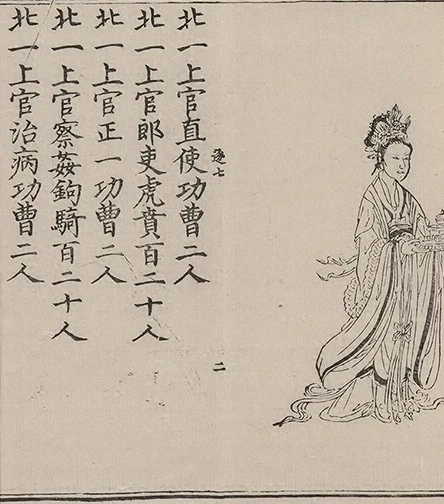 逐七
二
北一上官直使功曹二人
北一上官郎吏虎賁百二十人
北一上官正一功曹二人
北一上官察姦鉤騎百二十人
北一上官治病功曹二人